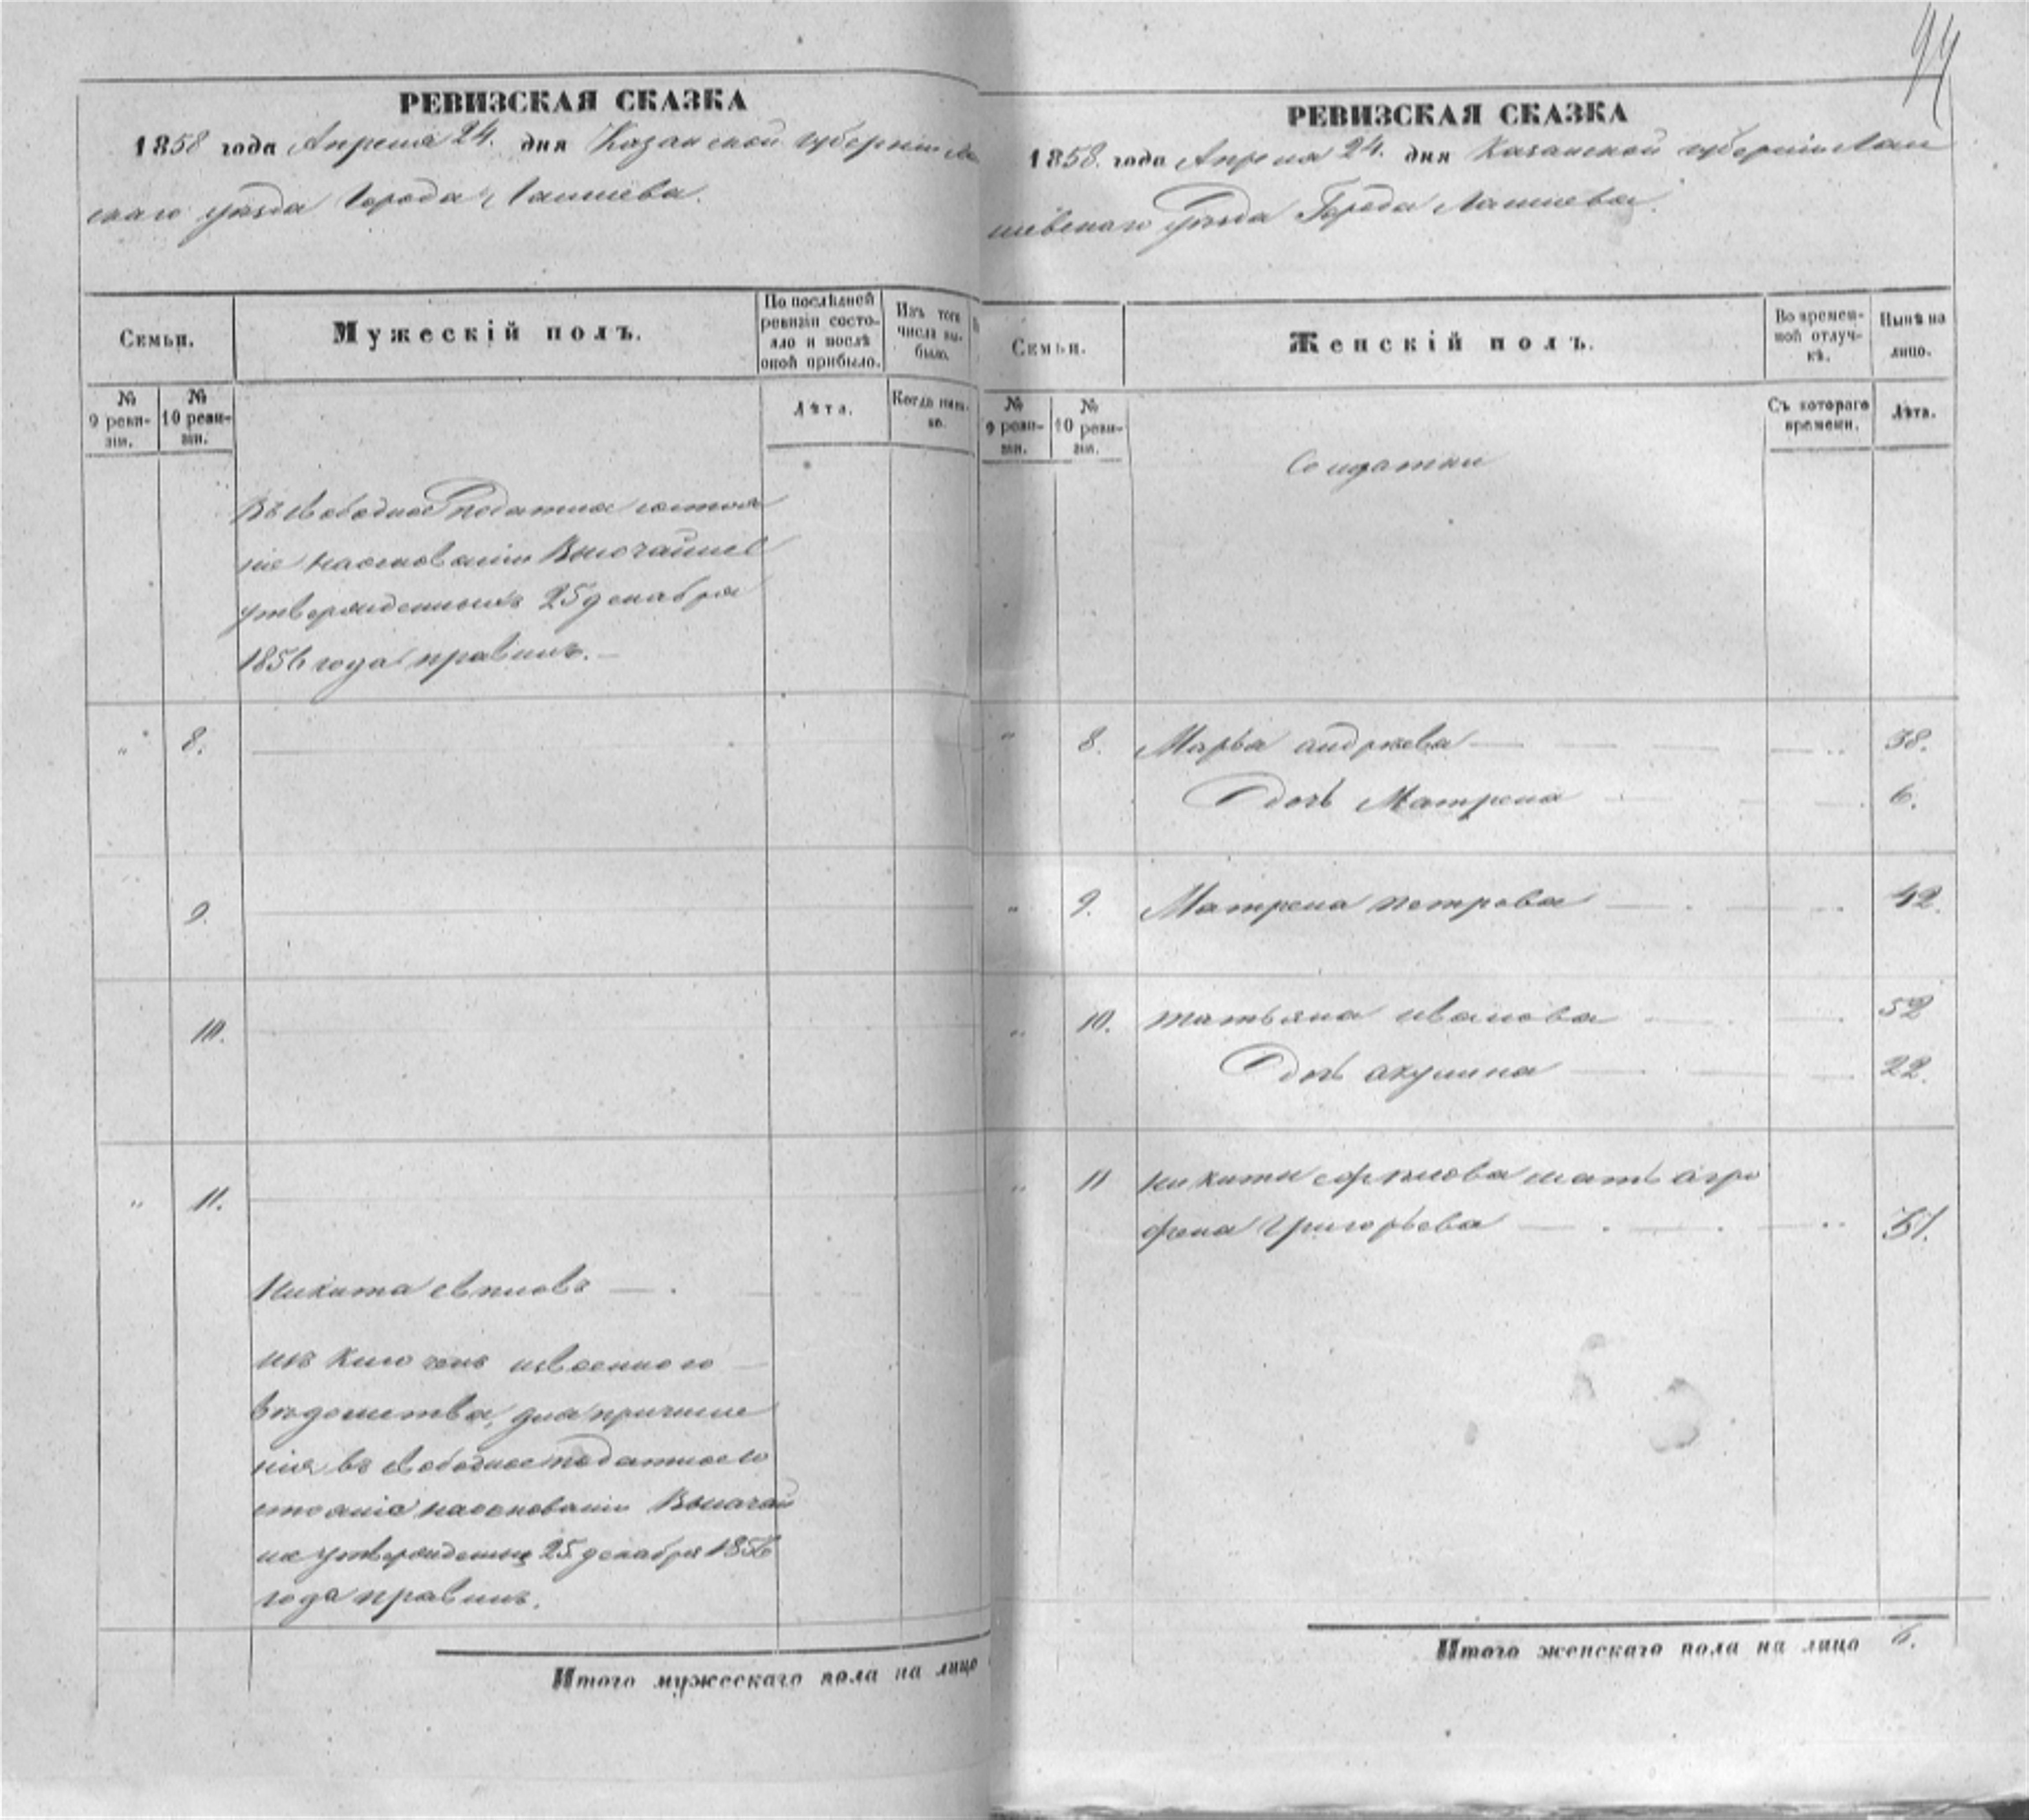 94
РЕВИЗСКАЯ СКАЗКА
1858 года Апреля 24. дня Казанской губернии Ла
скаго уѣзда Города Лаишева.
Семьи.
Мужескій полъ.
По послѣдней ревизіи состояло и послѣ оной прибыло.
Изъ того числа выбыло.
№ 9 ревизіи.
№ 10 ревизіи.
Лѣта.
Когда имянно.
Въ свободное податное состоя
ніе на основаніи Высочайше
утвержденныхъ 25 декабря
1856 года правилъ. —
„ 8.
9.
10.
„ 11.
Никита
ведомства, для причисле
нія въ свободное податное со
стояніе на основаніи Высочай
ше утвержденныхъ 25 декабря 1856
года правилъ.
Итого мужескаго пола на лицо
РЕВИЗСКАЯ СКАЗКА
1858. года Апреля 24. дня Казанской губерніи Лаи
шевскаго Уѣзда Города Лаишева.
Семьи.
Женскій полъ.
Во временной отлучкѣ.
Нынѣ на лицо.
№ 9 ревизіи.
№ 10 ревизіи.
Съ котораго времени.
Лѣта.
Солдатки
„ 8. Марья андреева — 38.
дочь Матрена 6.
„ 9. Матрена петрова — 42.
„ 10. татьяна иванова 52
дочь акулина — 22.
„ 11 никиты мать агро
фена григорьева — 51.
Итого женскаго пола на лицо 6.